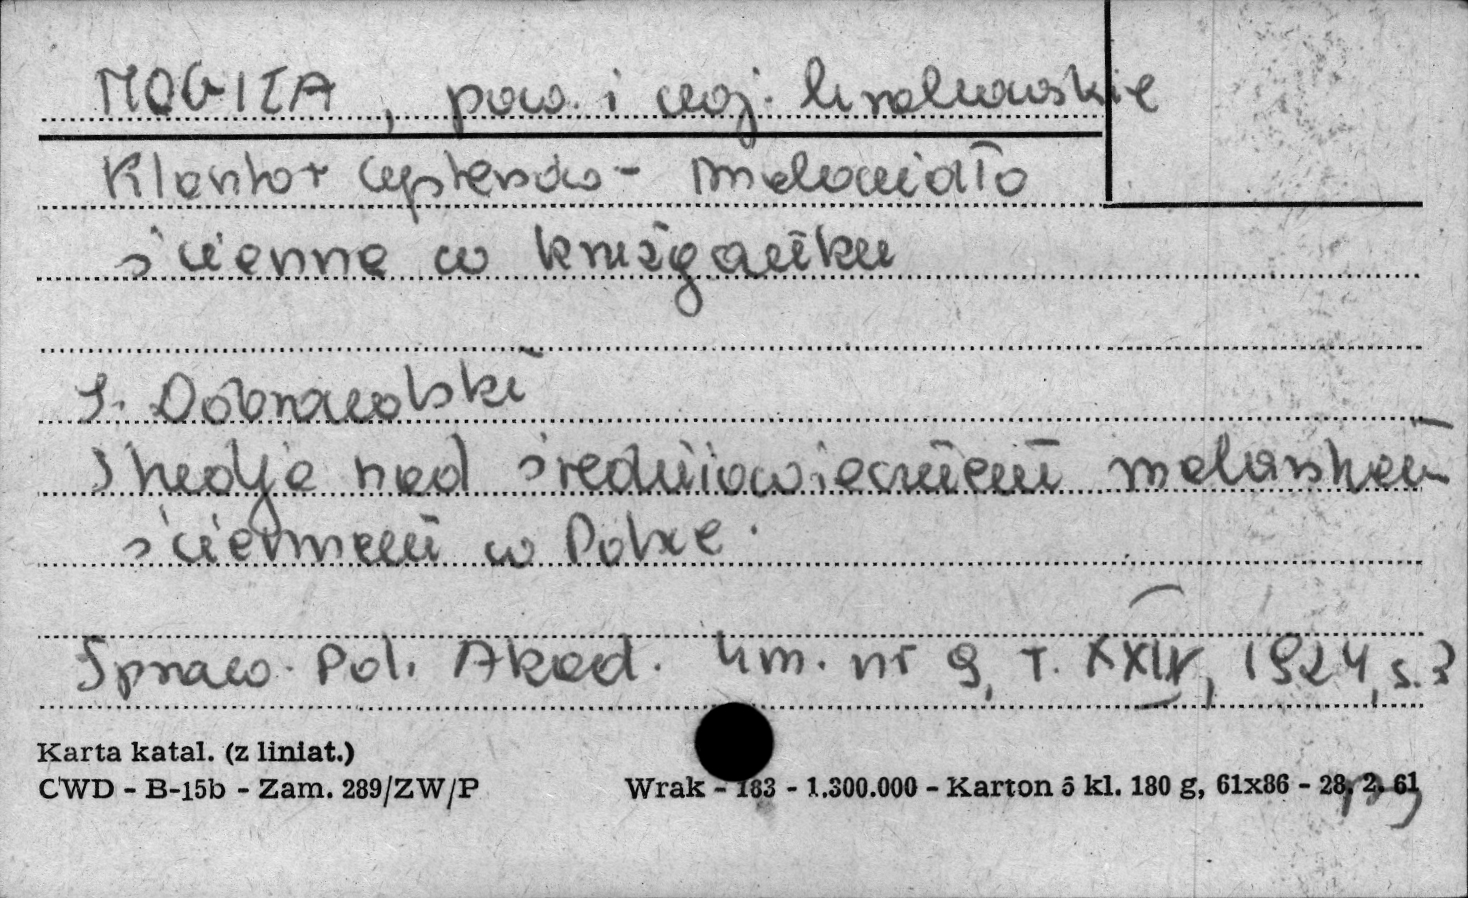 MOGIŁA, pow. i woj. krakowskie
Klasztor cystersów - malowidło
ścienne w krużganku
J. Dobrowolski
Studja nad średniowiecznem malarstwem
ściennem w Polsce.
Spraw. Pol. Akad. Um. nr 9, T. XXIX, 1924, s. 3
Karta katal. (z liniat.)
CWD - B-15b - Zam. 289/ZW/P
Wrak - 163 - 1.300.000 - Karton 5 kl. 180 g, 61x86 - 28. 2. 61